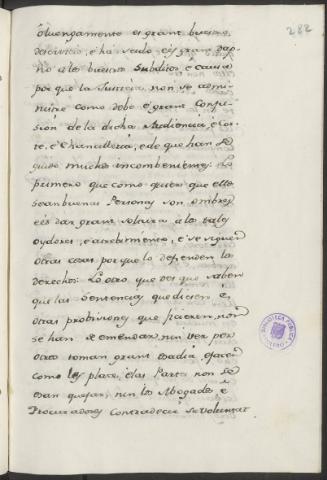 282
oluengamento es grant buestro
deservicio, é ha seydo é es grant dap-
no a los buestros Subditos é causa
por que la Justicia non se admi-
nistre como debe é grant confu-
sión de la dicha Audiencia, é Cor-
te, é Chancilleria, e de que han se
guido muchos incombenientes: Lo
primero que como quiera que ellos
sean buenas Personas son ombres,
é es dar grant soltura á los tales
oydores, é atrebimiento, é se siguen
otras cosas por que lo defienden los
derechos: Lo otro que des que saben
que las Sentencias que dieren é
otras probisiones que ficieren, non
se han de emendar, nin ver por
otro toman grant osadia, é facen
como les place, é las Partes non se
osan quejar, nin los Abogados é
Procuradores contradecir su voluntat
BIBLIOTECA PUBLICA